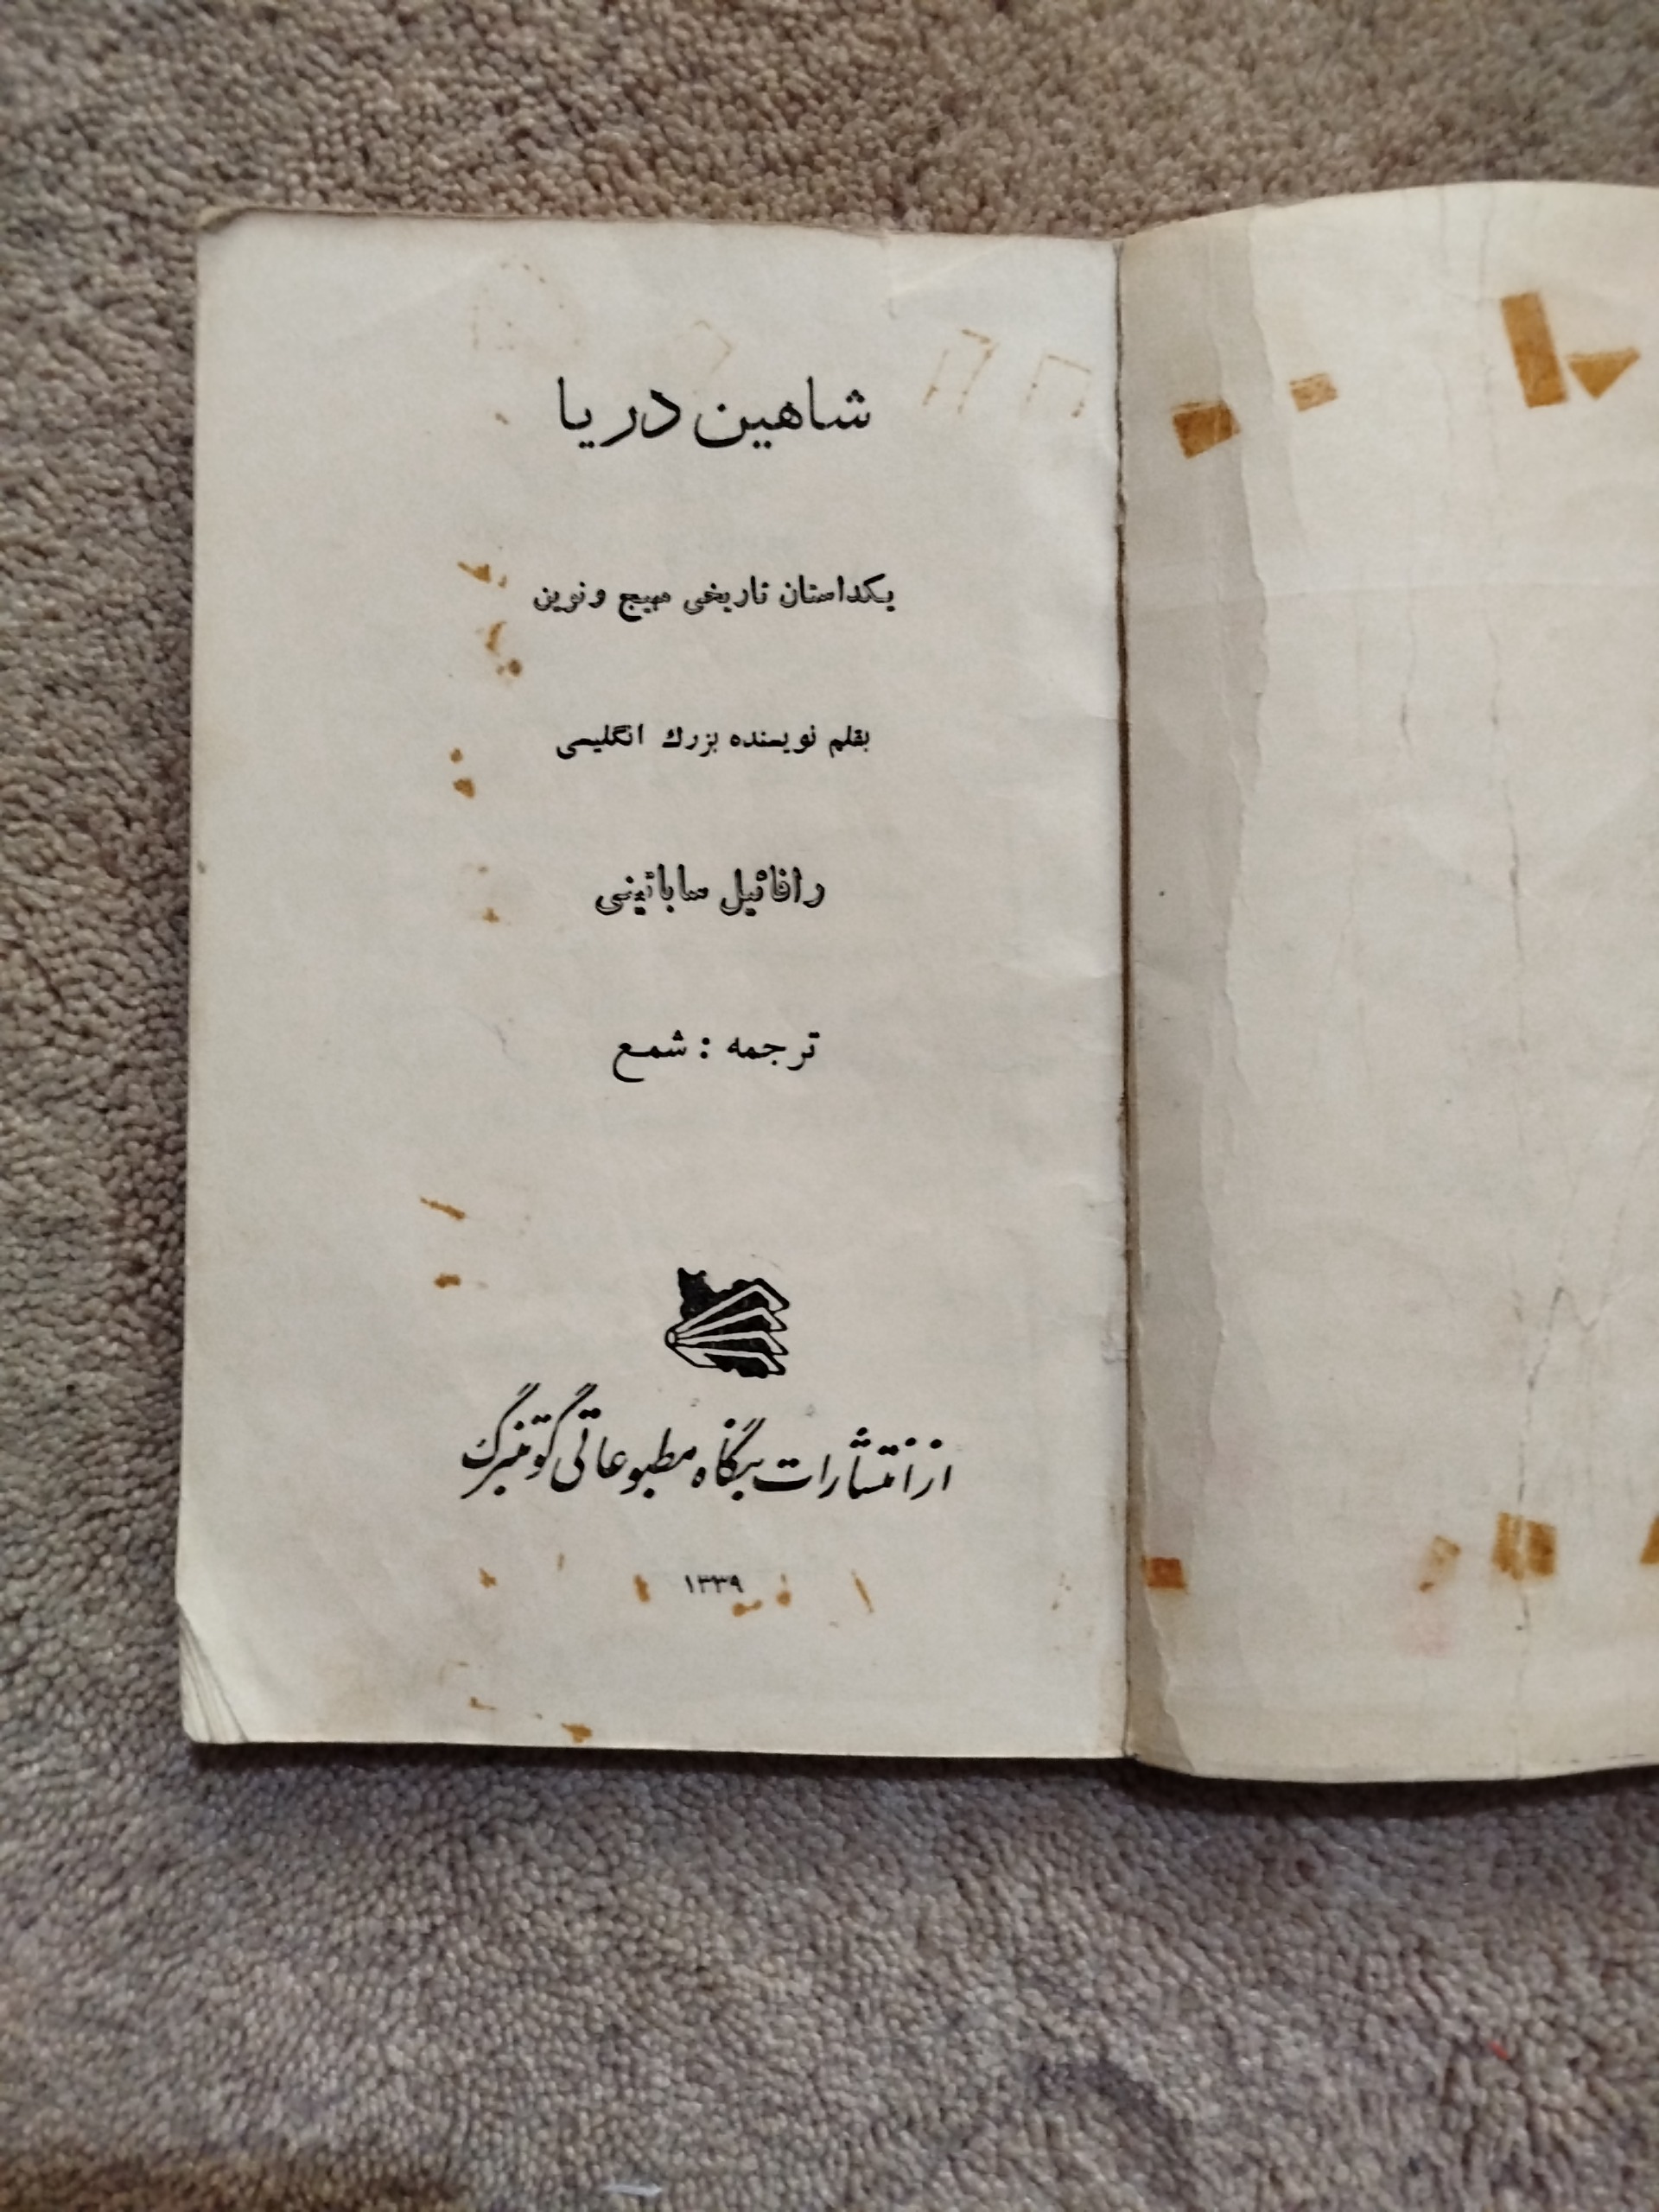 شاهین دریا
یکداستان تاریخی مهیج و نوین
بقلم نویسنده بزرك انگلیسی
رافائیل ساباتینی
ترجمه : شمع
از انتشارات بنگاه مطبوعاتی گوتمبرگ
۱۳۳۹